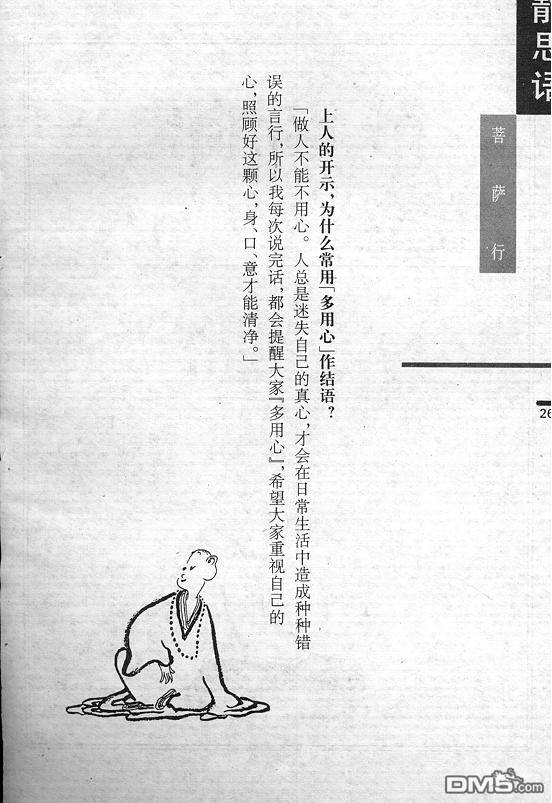 静思语
菩萨行
26
上人的开示，为什么常用「多用心」作结语？
「做人不能不用心。人总是迷失自己的真心，才会在日常生活中造成种种错
误的言行，所以我每次说完话，都会提醒大家『多用心』，希望大家重视自己的
心，照顾好这颗心，身、口、意才能清净。」
DM5.com